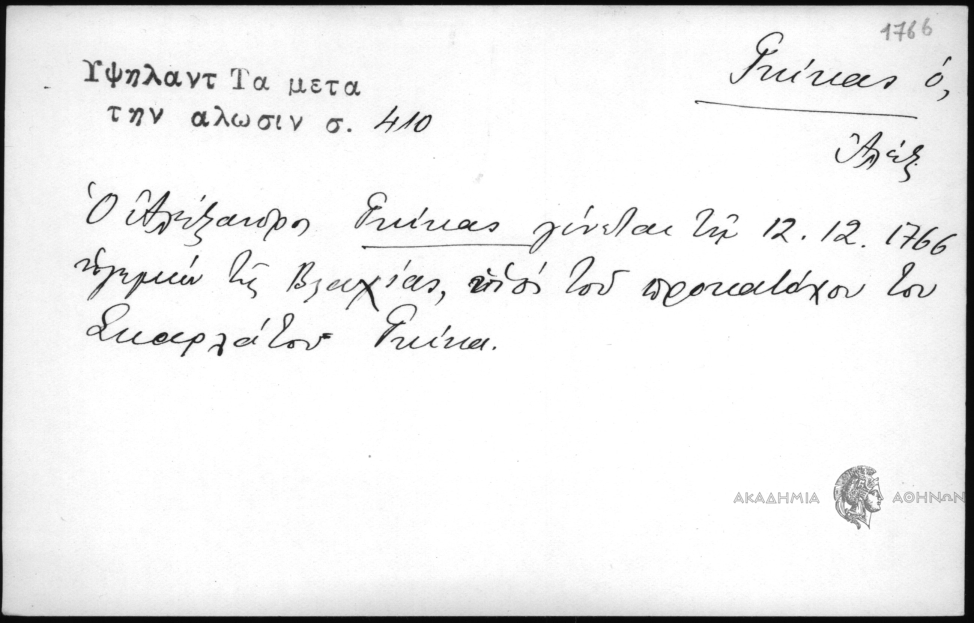 1766
Υψηλαντ Τα μετα
την αλωσιν σ. 410
Γκίκας ὁ,
Ἀλέξ.
Ὁ Ἀλέξανδρος Γκίκας γίνεται τῇ 12.12.1766
ἡγεμὼν τῆς Βλαχίας, υἱός τοῦ προκατόχου του
Σκαρλάτου Γκίκα.
ΑΚΑΔΗΜΙΑ ΑΘΗΝΩΝ